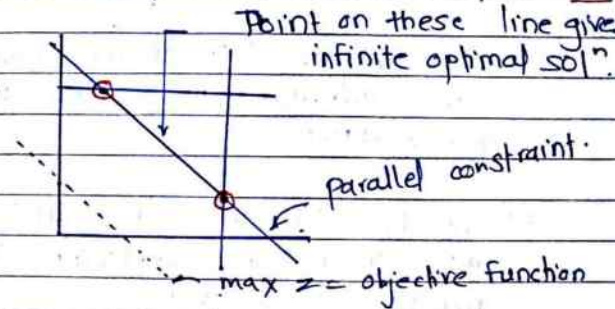 Point on these line give
infinite optimal solⁿ.
parallel constraint.
max z = objective function